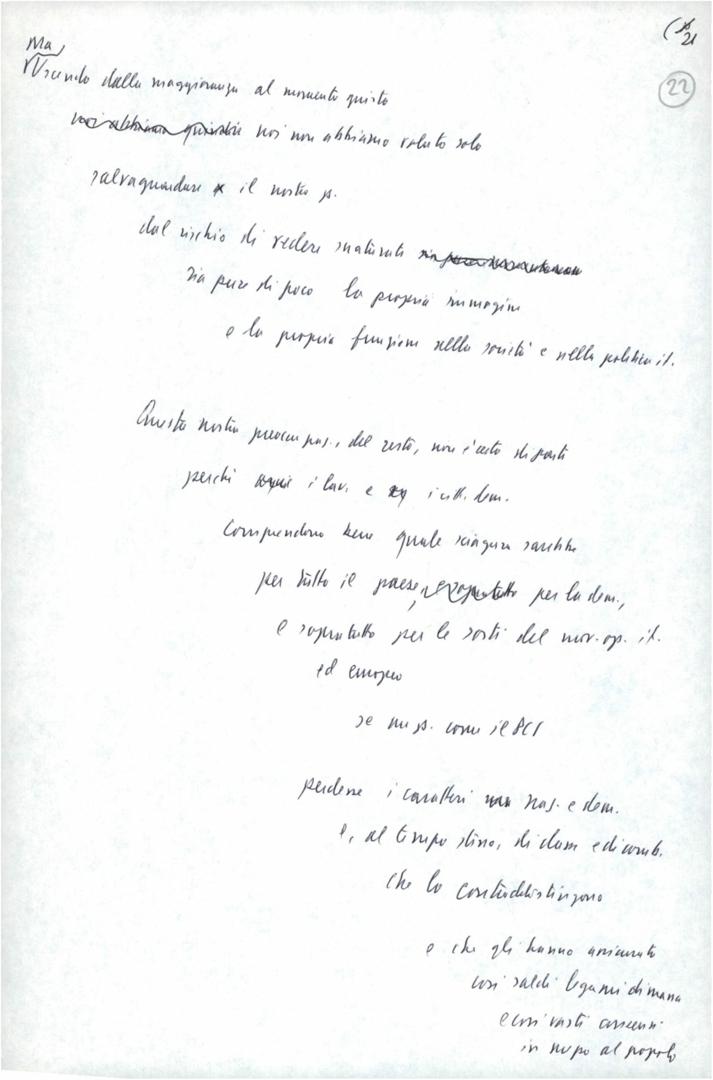 22
21
Ma
Uscendo dalla maggioranza al momento giusto
noi non abbiamo voluto solo
salvaguardare il nostro p.
dal rischio di vedere snaturati
sia pure di poco la propria immagine
e la propria funzione nella società e nella politica it.
Questa nostra preoccupaz., del resto, non è certo di parte
perché i lav. e i citt. dem.
comprendono bene quale sciagura sarebbe
per tutto il paese, per la dem.,
e sopratutto per le sorti del mov. op. it.
ed europeo
se un p. come il PCI
perdesse i caratteri naz. e dem.
e, al tempo stesso, di classe e di comb.
che lo contraddistinguono
e che gli hanno assicurato
così saldi legami di massa
e così vasti consensi
in mezzo al popolo